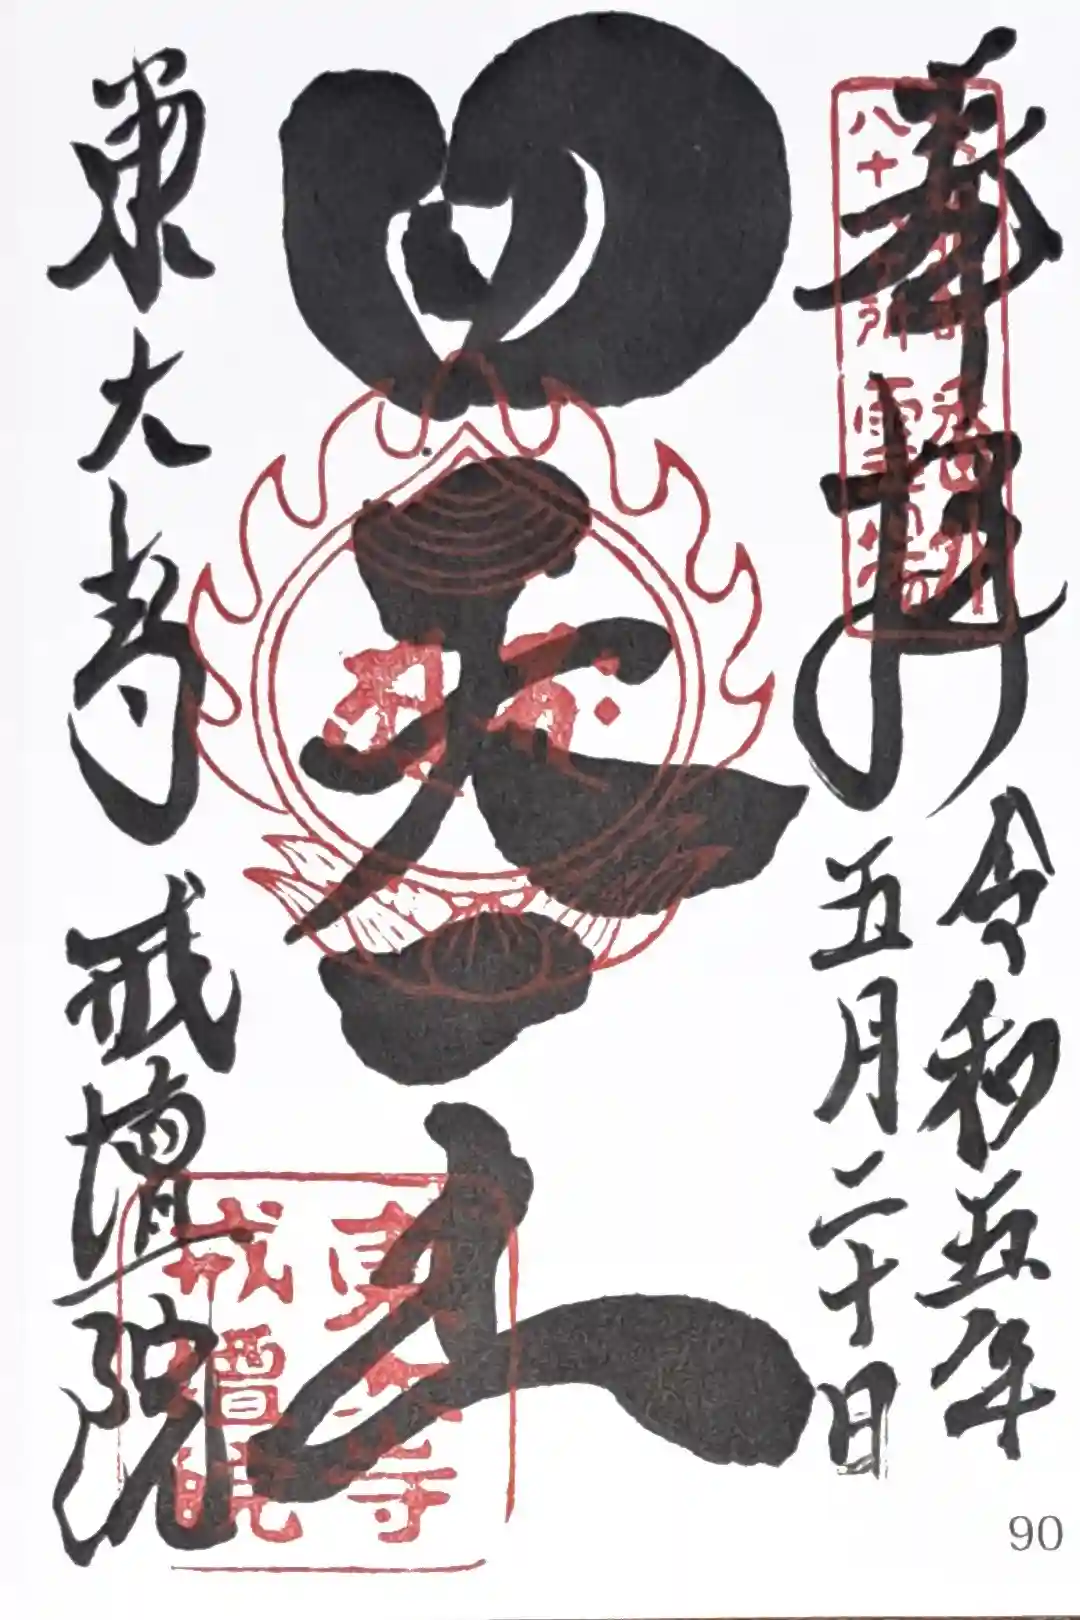 奉拝
番外
八十八ヶ所霊場
令和五年
五月二十日
四天王
東大寺
戒壇院
東大寺戒壇院
90